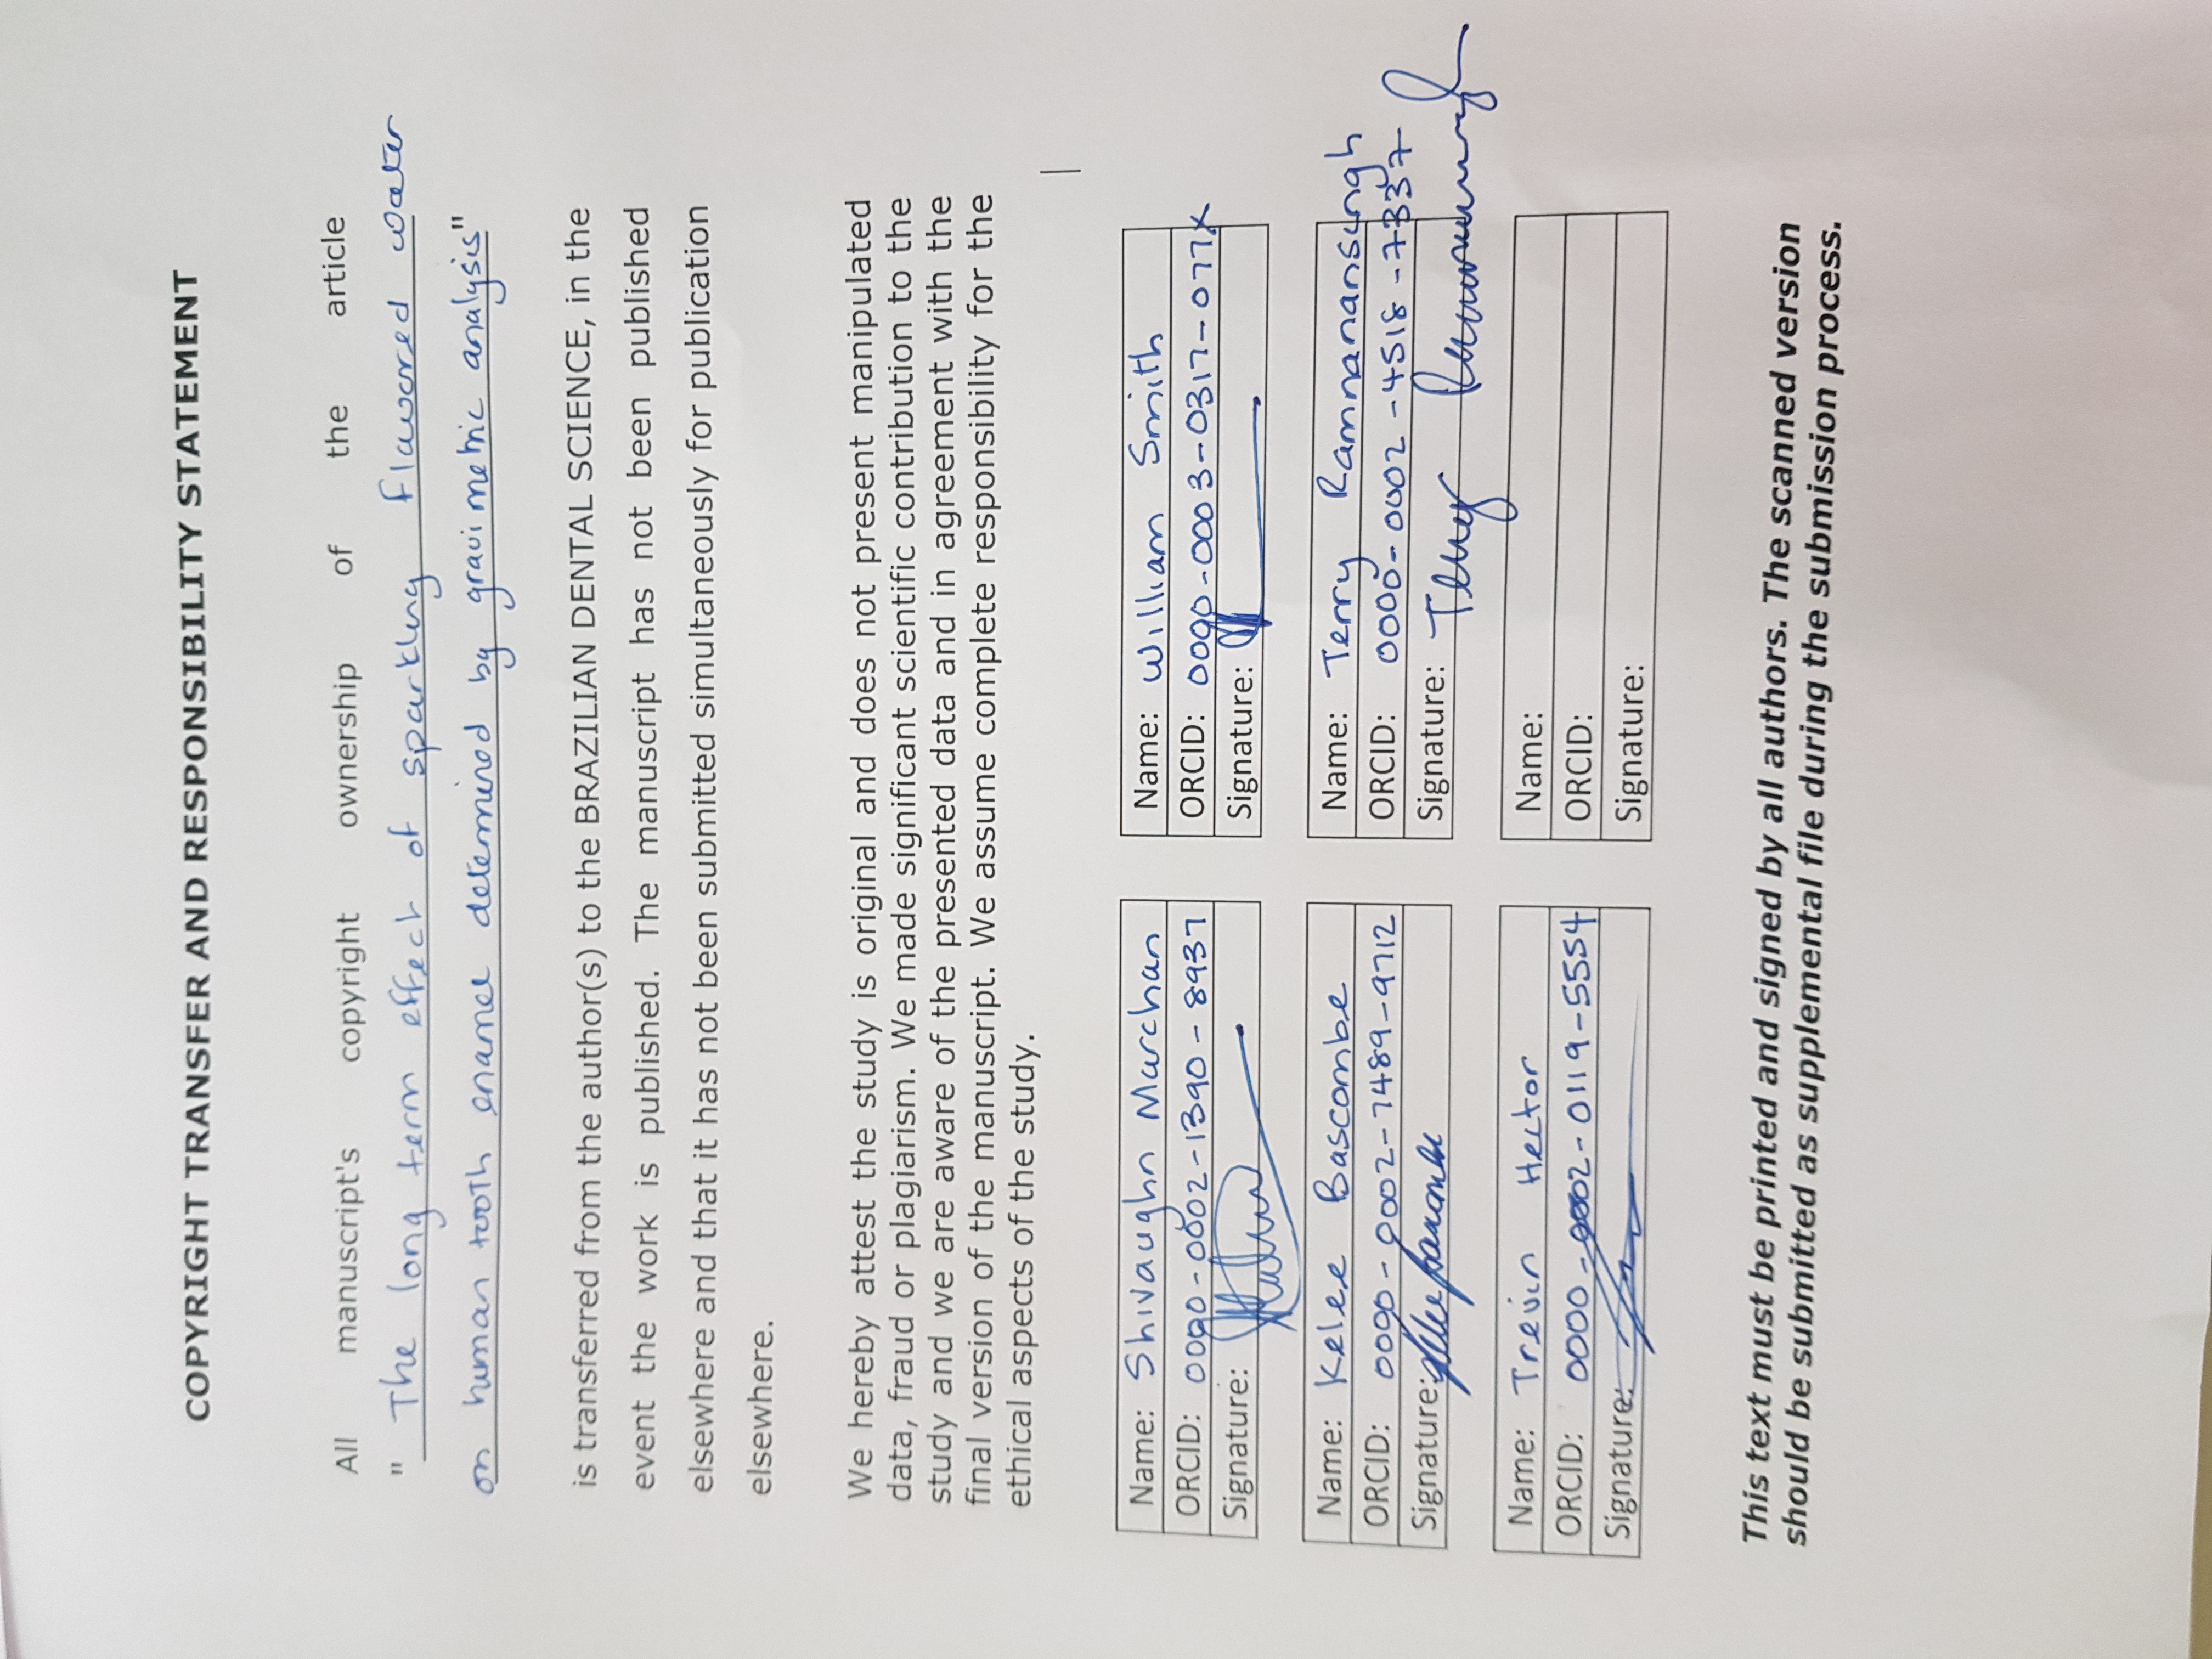 COPYRIGHT TRANSFER AND RESPONSIBILITY STATEMENT
All manuscript's copyright ownership of the article
" The long term effect of sparkling flavored water
on human tooth enamel determined by gravimetric analysis"
is transferred from the author(s) to the BRAZILIAN DENTAL SCIENCE, in the
event the work is published. The manuscript has not been published
elsewhere and that it has not been submitted simultaneously for publication
elsewhere.
We hereby attest the study is original and does not present manipulated
data, fraud or plagiarism. We made significant scientific contribution to the
study and we are aware of the presented data and in agreement with the
final version of the manuscript. We assume complete responsibility for the
ethical aspects of the study.
Name: Shivaughn Marchan
ORCID: 0000-0002-1390-8937
Signature:
Name: William Smith
ORCID: 0000-0003-0317-077X
Signature:
Name: Kelee Bascombe
ORCID: 0000-0002-7489-9712
Signature:
Name: Terry Ramnanansingh
ORCID: 0000-0002-4518-7337
Signature: Terry
Name: Trevin Hector
ORCID: 0000-0002-0119-5554
Signature:
Name:
ORCID:
Signature:
This text must be printed and signed by all authors. The scanned version
should be submitted as supplemental file during the submission process.